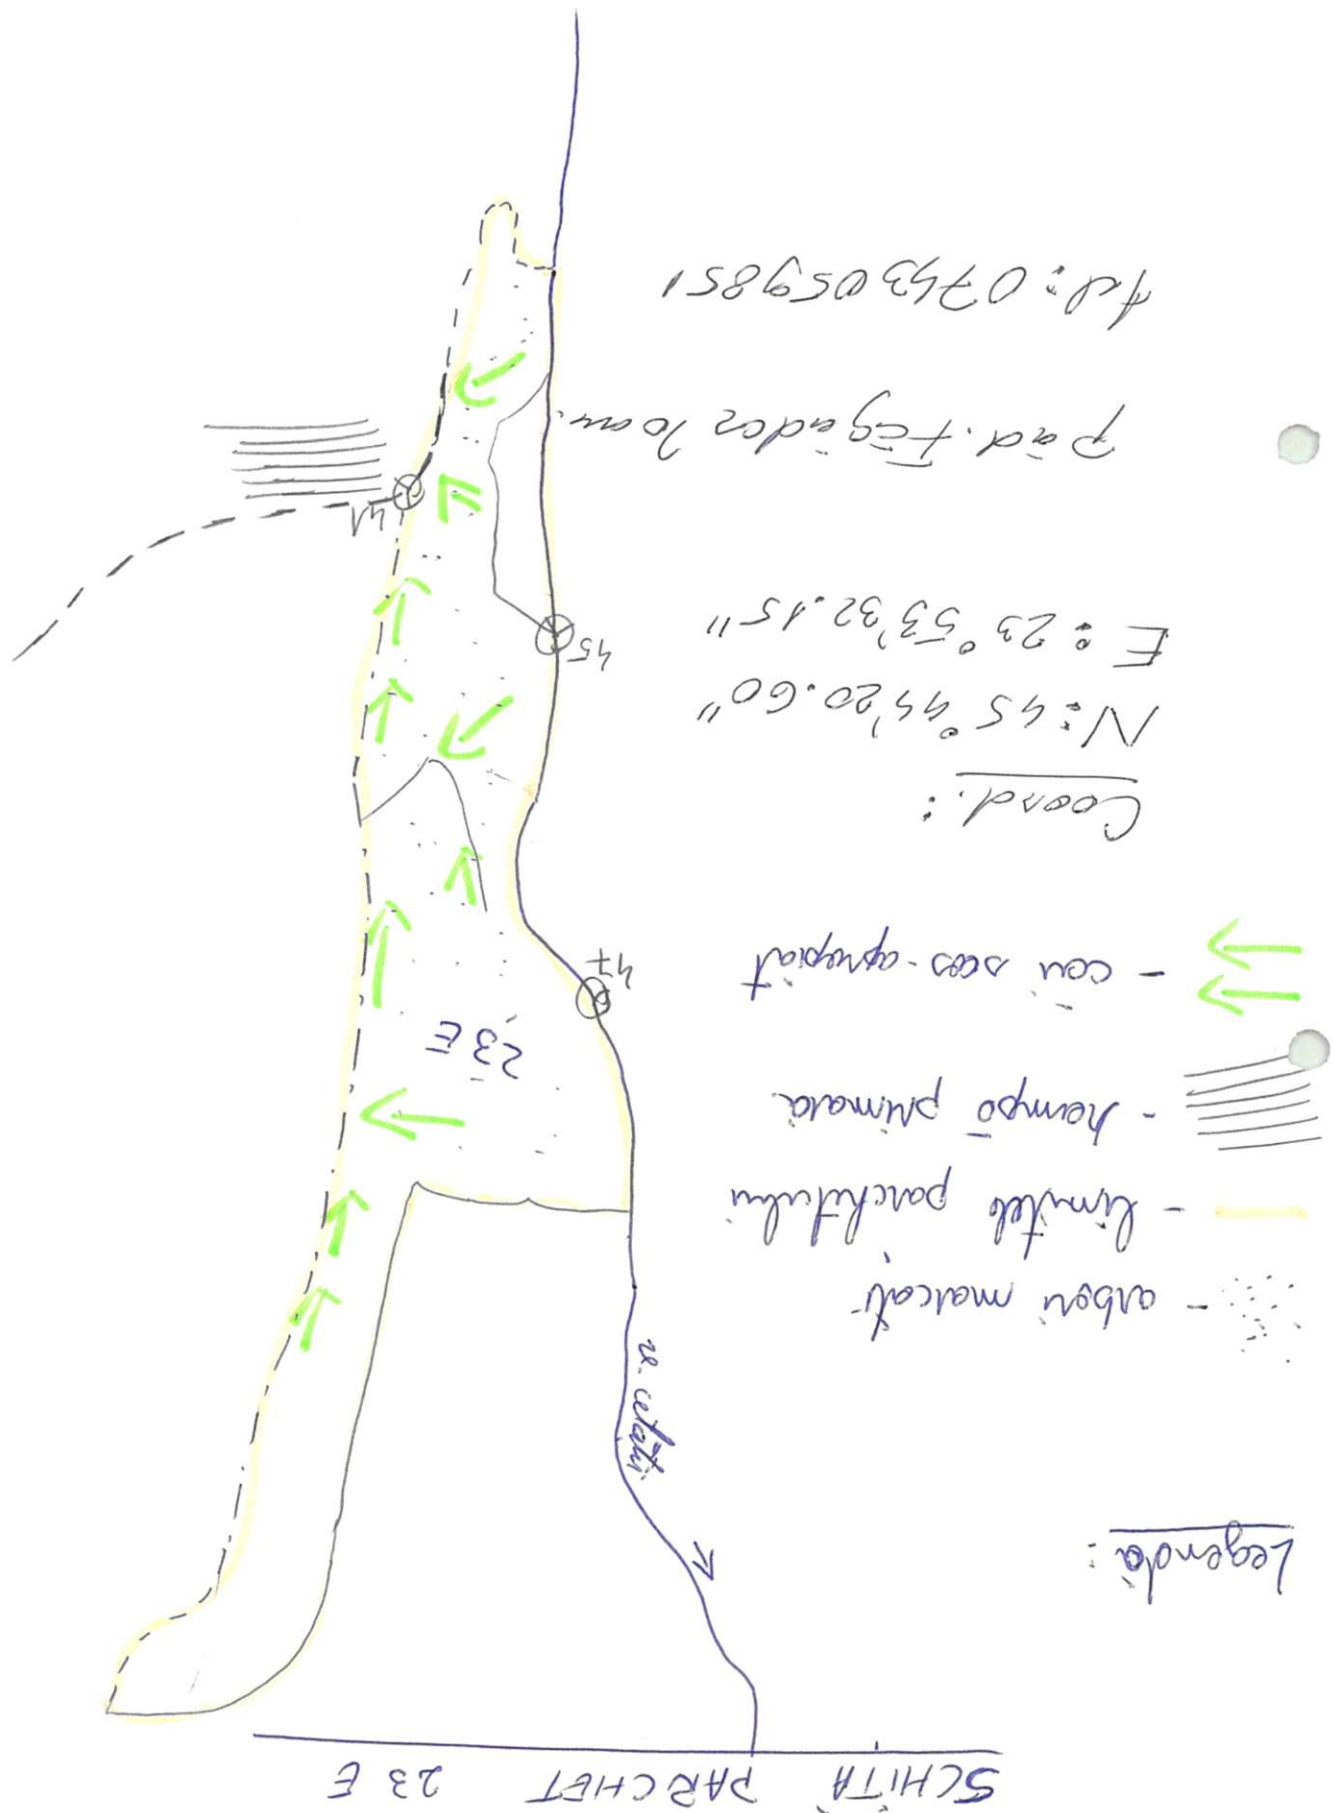 SCHIȚĂ PARCHET 23 E
Legendă:
- arbori marcați
- limitele parchetului
- rampă primară
- căi scos-apropiat
Coord.:
N: 45°44'20.60"
E: 23°53'32.15"
păd. Făgădar Ioan.
tel: 0743059851
v. cetății
23 E
47
45
41